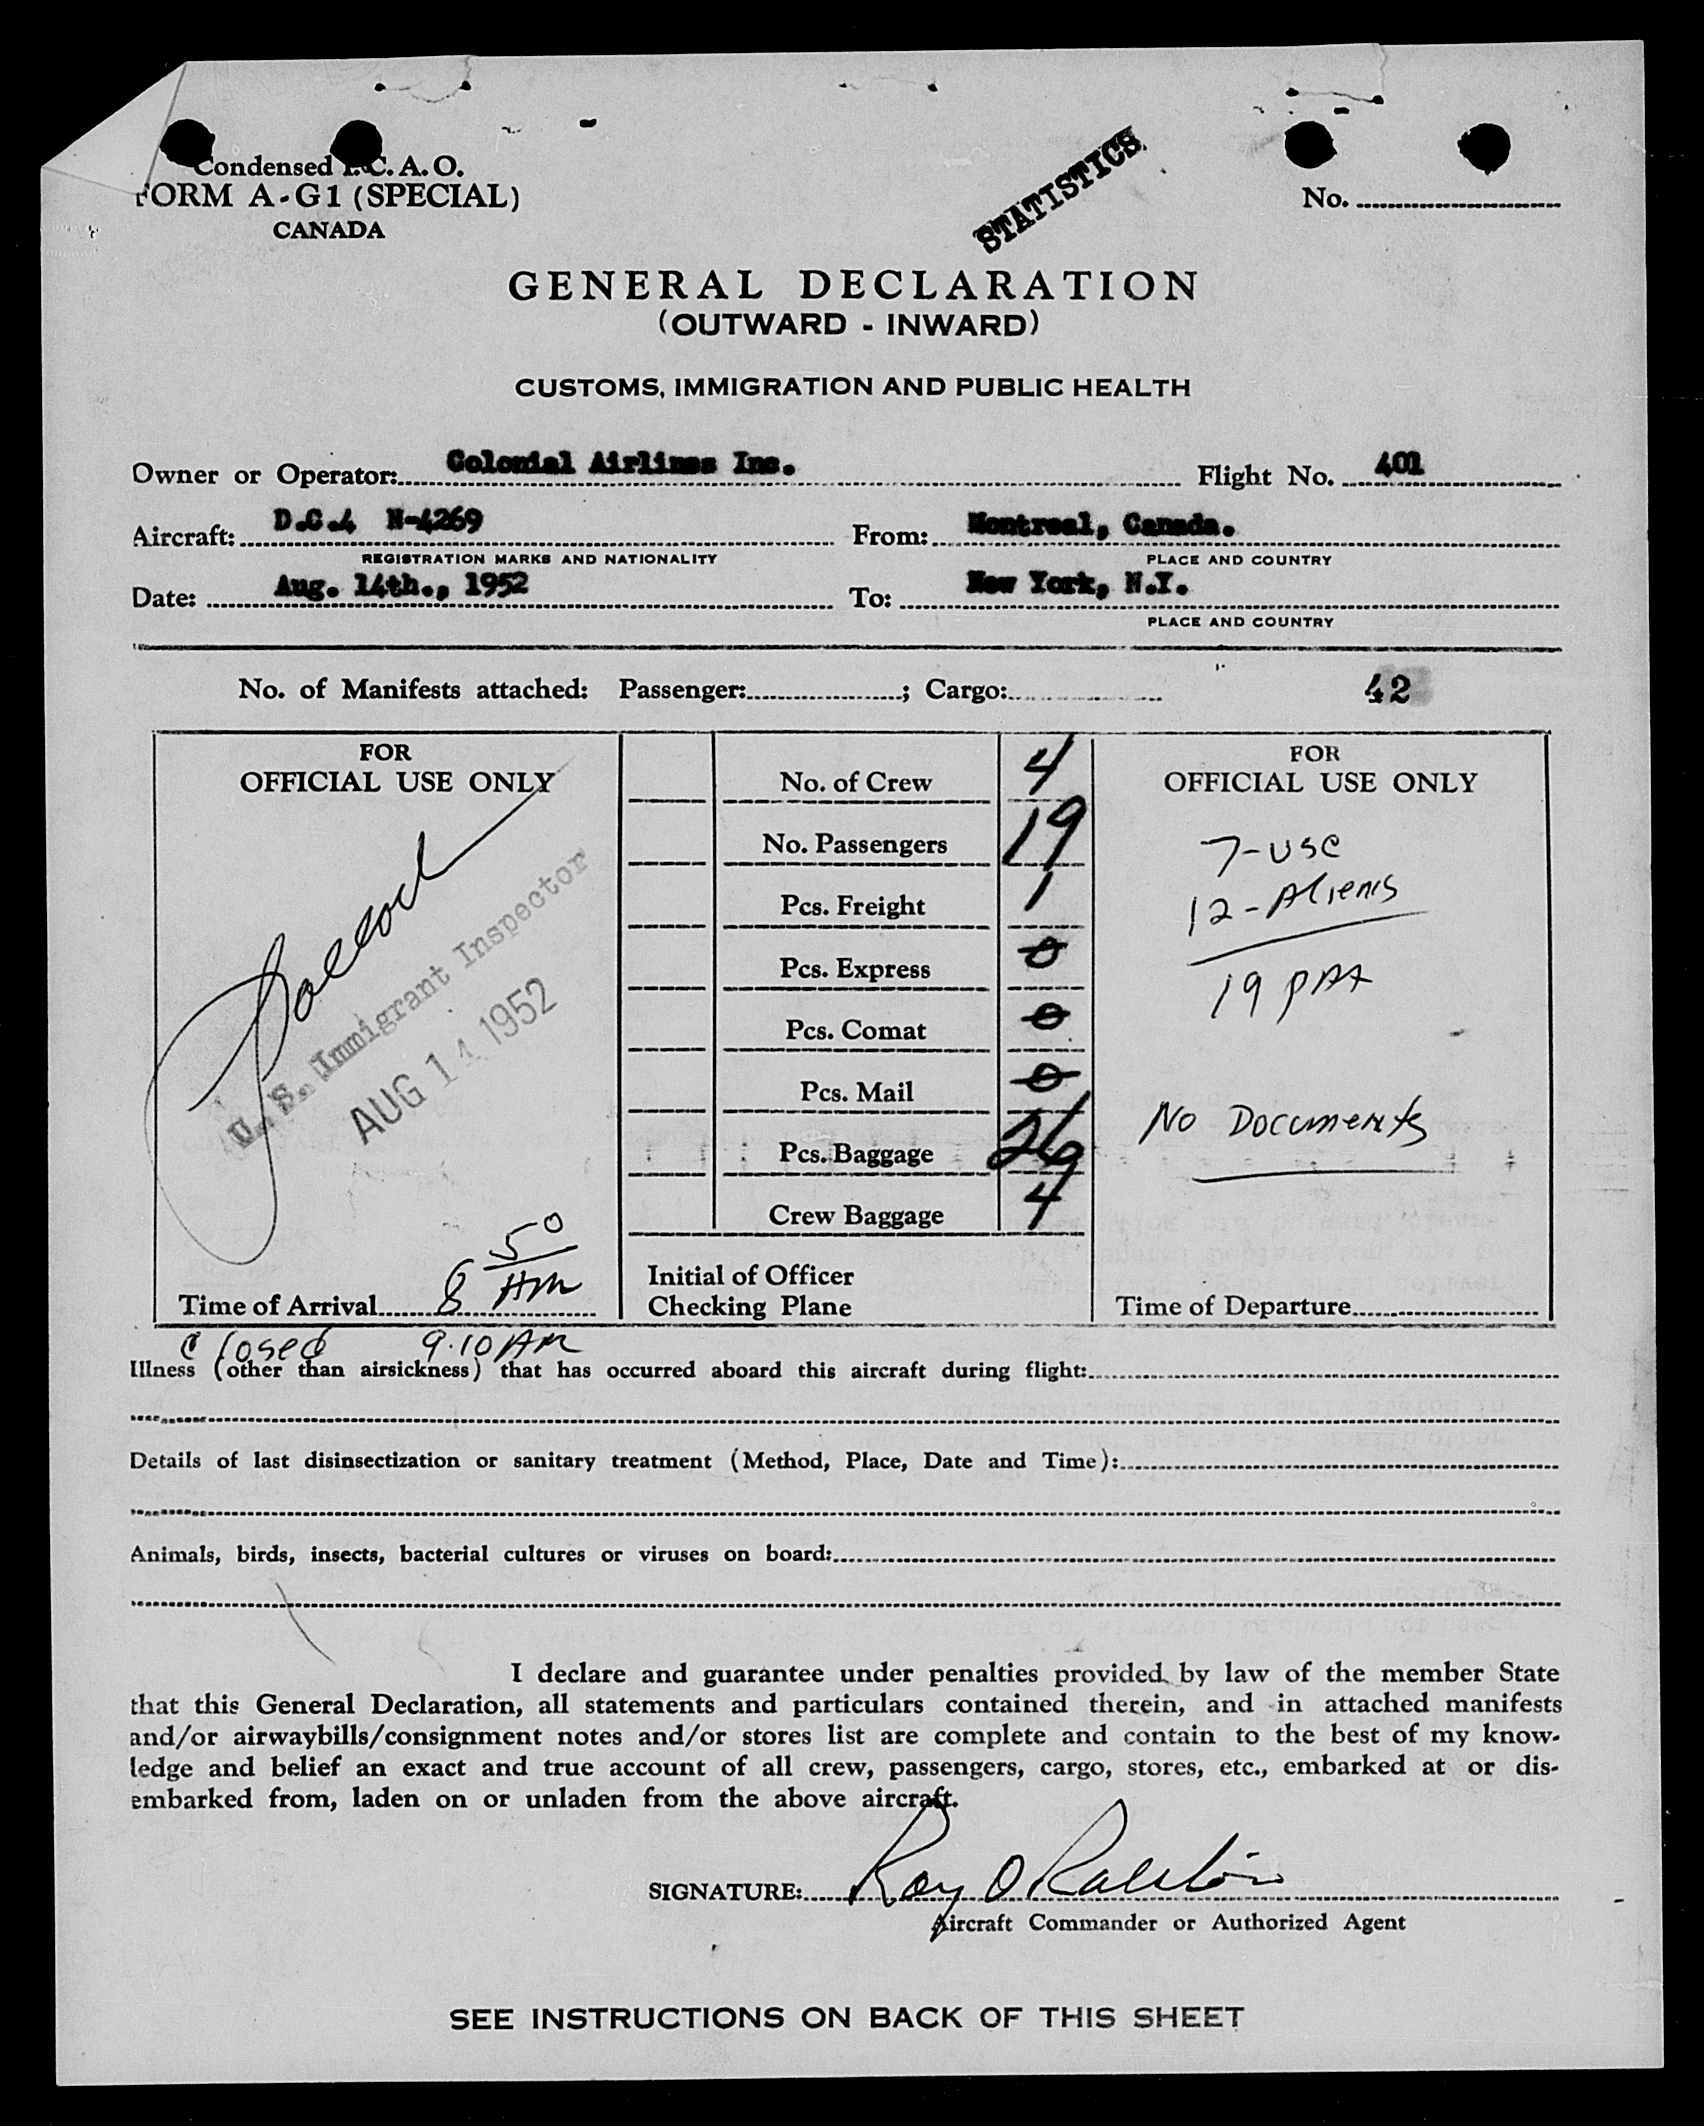 Condensed I.C.A.O.
FORM A-G1 (SPECIAL)
CANADA
STATISTICS
No.
GENERAL DECLARATION
(OUTWARD - INWARD)
CUSTOMS, IMMIGRATION AND PUBLIC HEALTH
Owner or Operator: Colonial Airlines Inc. Flight No. 401
Aircraft: D.C.4 N-4269 From: Montreal, Canada.
REGISTRATION MARKS AND NATIONALITY PLACE AND COUNTRY
Date: Aug. 14th., 1952 To: New York, N.Y.
PLACE AND COUNTRY
No. of Manifests attached: Passenger: ; Cargo: 42
FOR
OFFICIAL USE ONLY
U. S. Immigrant Inspector
AUG 14 1952
Time of Arrival 8 50 AM
Closed 9.10 AM
No. of Crew 4
No. Passengers 19
Pcs. Freight 1
Pcs. Express 0
Pcs. Comat 0
Pcs. Mail 0
Pcs. Baggage 26
Crew Baggage 4
Initial of Officer
Checking Plane
FOR
OFFICIAL USE ONLY
7-USC
12-Aliens
19 PAX
No Documents
Time of Departure
Illness (other than airsickness) that has occurred aboard this aircraft during flight:
Details of last disinsectization or sanitary treatment (Method, Place, Date and Time):
Animals, birds, insects, bacterial cultures or viruses on board:
I declare and guarantee under penalties provided by law of the member State
that this General Declaration, all statements and particulars contained therein, and in attached manifests
and/or airwaybills/consignment notes and/or stores list are complete and contain to the best of my know-
ledge and belief an exact and true account of all crew, passengers, cargo, stores, etc., embarked at or dis-
embarked from, laden on or unladen from the above aircraft.
SIGNATURE: Roy O Ralston
Aircraft Commander or Authorized Agent
SEE INSTRUCTIONS ON BACK OF THIS SHEET